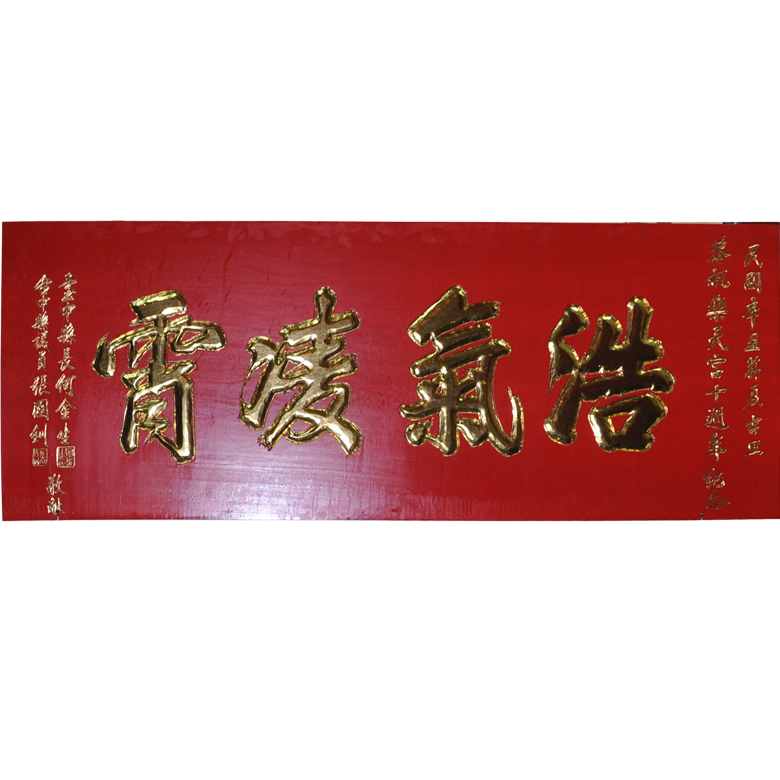 民國辛盃葬夏吉旦
恭祝樂天宮十週年紀念
浩氣凌霄
臺中縣長何金生
台中縣議員張國釧
敬獻